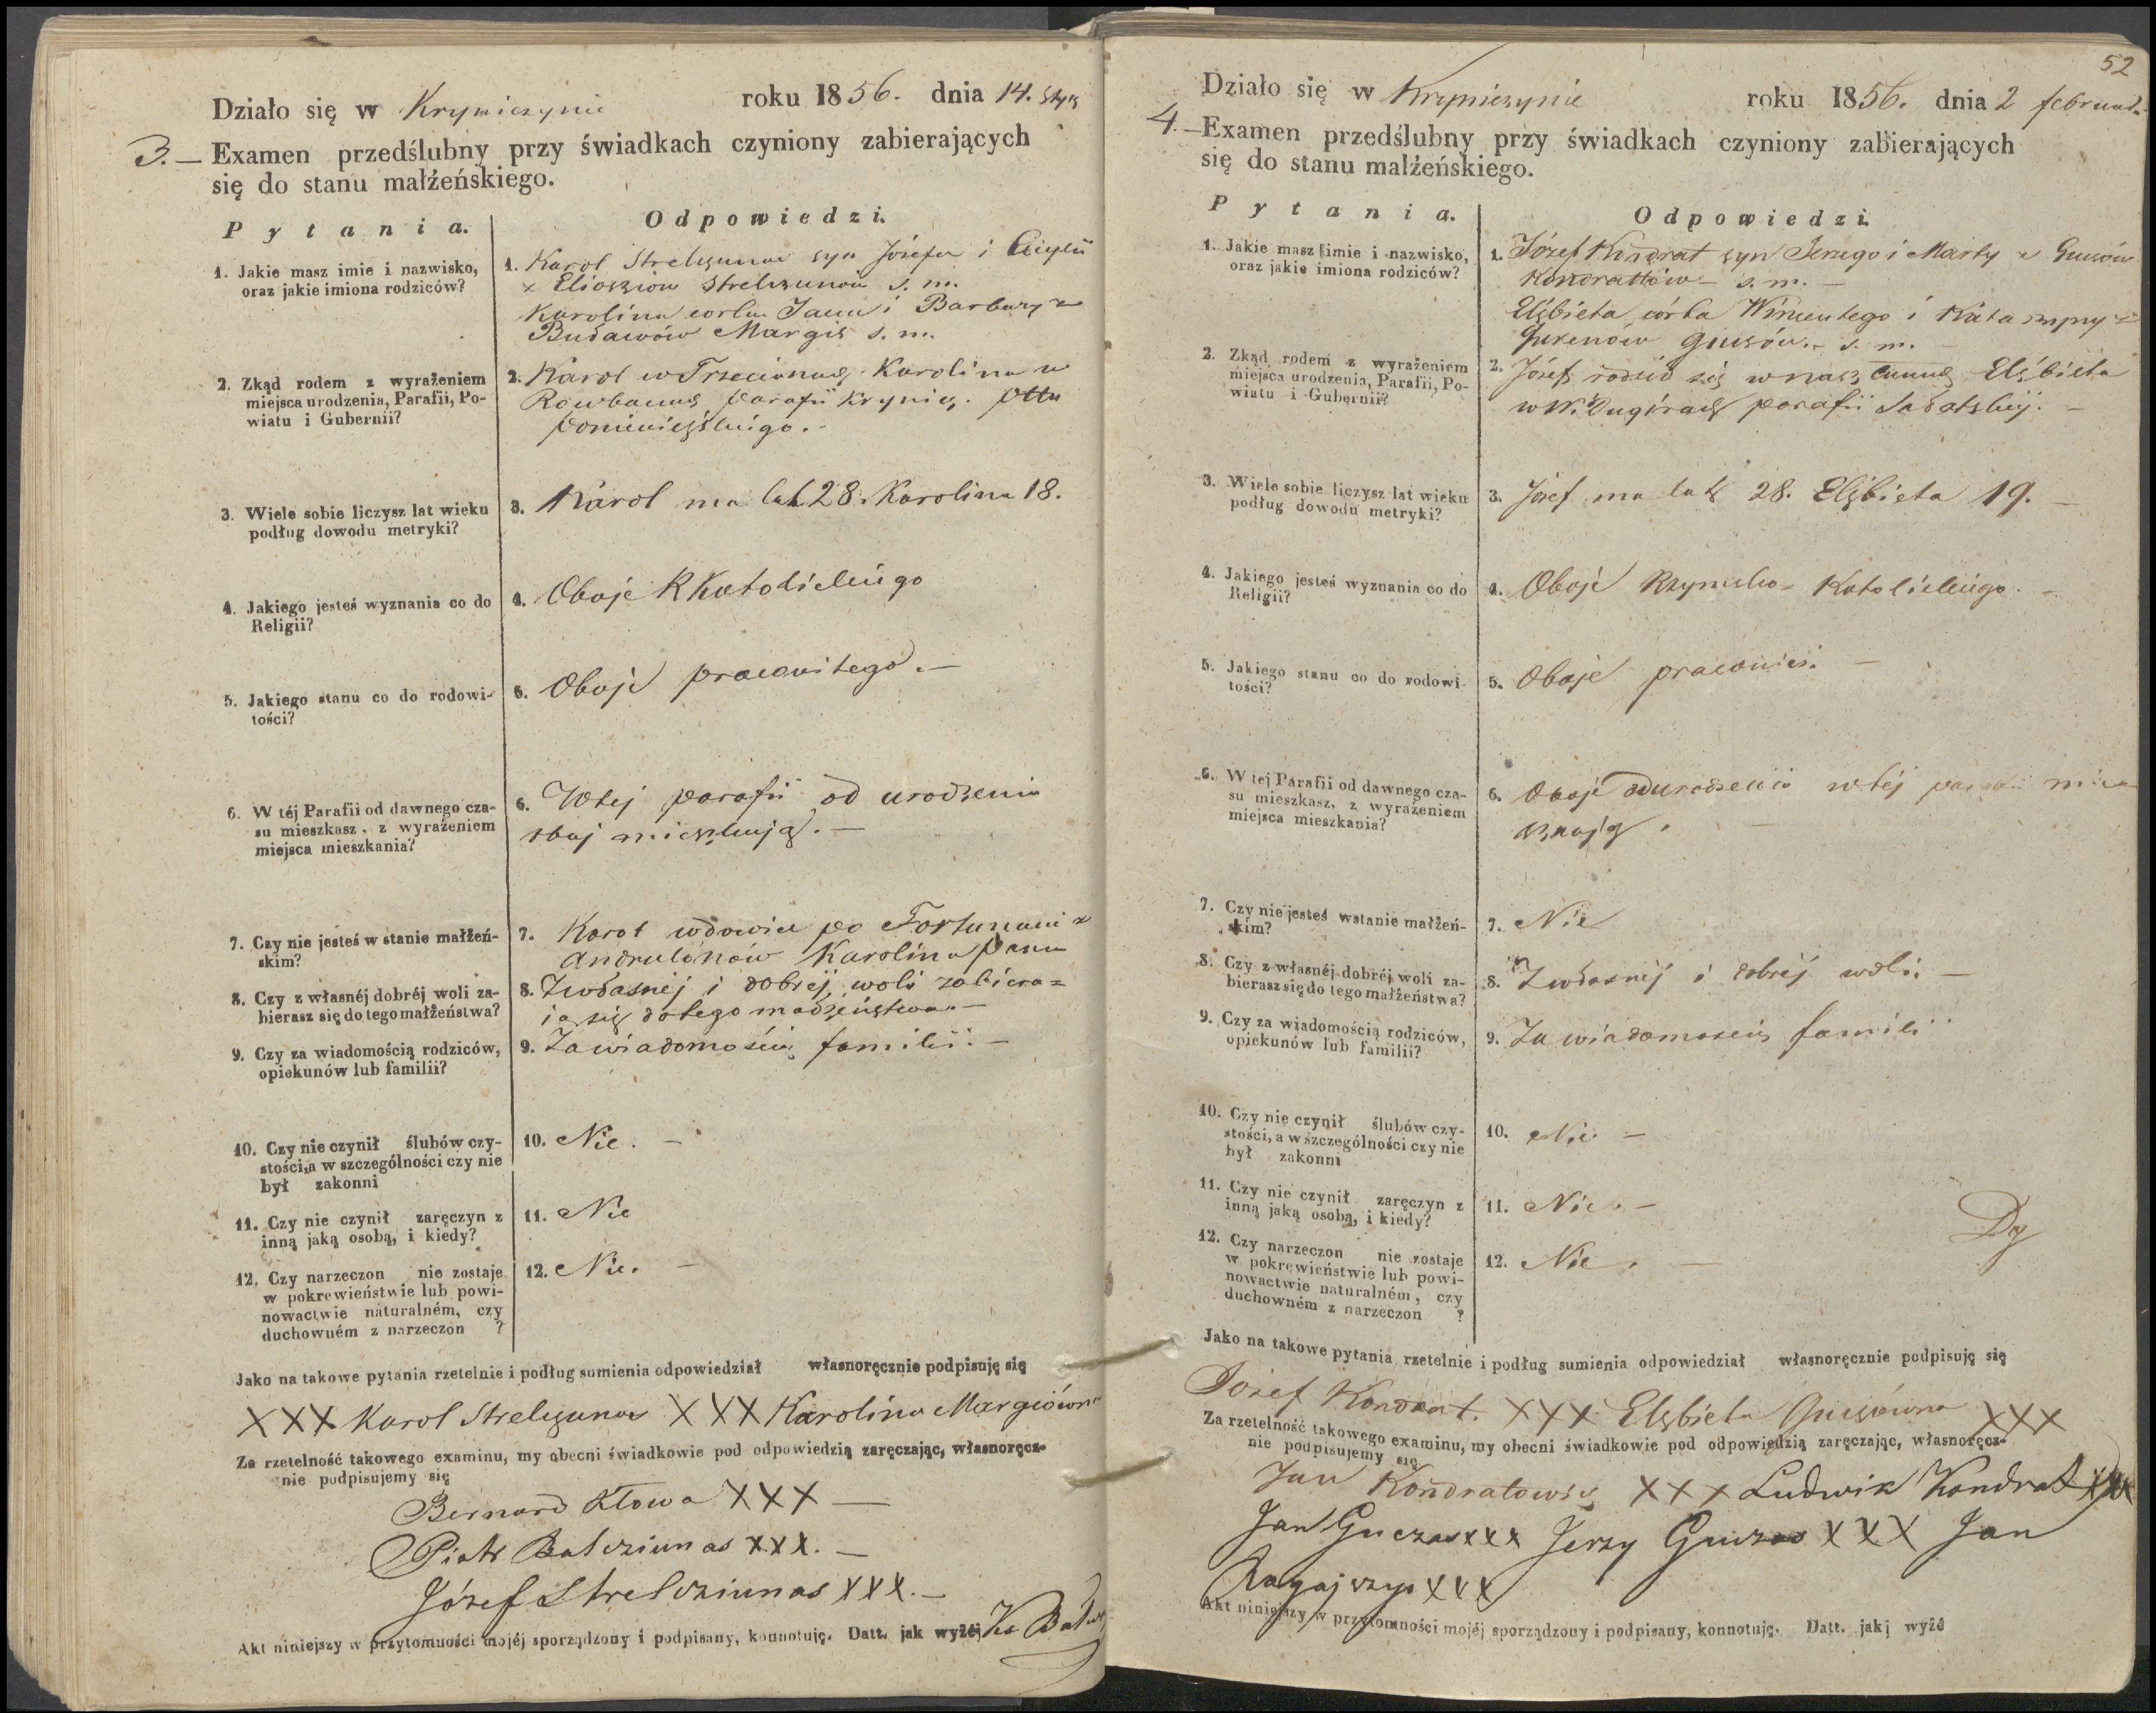 Działo się w Krynicznie roku 1856. dnia 14. stycz
3.— Examen przedślubny przy świadkach czyniony zabierających
się do stanu małżeńskiego.
Pytania. Odpowiedzi.
1. Jakie masz imie i nazwisko,
oraz jakie imiona rodziców?
1. Karol Strelczunas syn Józefa i
z Elioszów Strelczunów s. m.
Karolina corka Jana i Barbary z
Budawów Margis s. m.
2. Zkąd rodem z wyrażeniem
miejsca urodzenia, Parafii, Po-
wiatu i Gubernii?
2. Karol w Trzecianach Karolina w
parafii Krynicz. Pttu
Poniewiezskiego.
3. Wiele sobie liczysz lat wieku
podług dowodu metryki?
3. Karol ma lat 28. Karolina 18.
4. Jakiego jesteś wyznania co do
Religii?
4. Oboje R Katolickiego
5. Jakiego stanu co do rodowi-
tości?
5. Oboje pracowitego.—
6. W téj Parafii od dawnego cza-
su mieszkasz, z wyrażeniem
miejsca mieszkania?
6. W tej parafii od urodzenia
mieszkają.—
7. Czy nie jesteś w stanie małżeń-
skim?
7. Karol wdowiec po Fortunacie z
Andrulonów Karolina panna
8. Czy z własnéj dobréj woli za-
bierasz się do tego małżeństwa?
8. Z własnej i dobrej woli zabiera=
ją się do tego małżeństwa.—
9. Czy za wiadomością rodziców,
opiekunów lub familii?
9. Za wiadomością familii.—
10. Czy nie czynił ślubów czy-
stości, a w szczególności czy nie
był zakonni
10. Nie.—
11. Czy nie czynił zaręczyn z
inną jaką osobą, i kiedy?
11. Nie
12. Czy narzeczon nie zostaje
w pokrewieństwie lub powi-
nowactwie naturalném, czy
duchowném z narzeczon ?
12. Nie.—
Jako na takowe pytania rzetelnie i podług sumienia odpowiedział własnoręcznie podpisuję się
XXX Karol Strelczunas XXX Karolina Margiówna
Za rzetelność takowego examinu, my obecni świadkowie pod odpowiedzią zaręczając, własnoręcz-
nie podpisujemy się
Bernard Kłowa XXX —
Piotr Balcziunas XXX.—
Józef Strelcziunas XXX.—
Akt niniejszy w przytomności mojéj sporządzony i podpisany, konnotuję. Datt. jak wyżéj
52
Działo się w Krynicznie roku 1856. dnia 2 februar.
4.— Examen przedślubny przy świadkach czyniony zabierających
się do stanu małżeńskiego.
Pytania. Odpowiedzi.
1. Jakie masz imie i nazwisko,
oraz jakie imiona rodziców?
1. Józef Kondrat syn Jerzego i Marty z Guzów
Kondratów— s. m.—
Elżbieta córka Wincentego i Katarzyny z
Guzów.— s. m.—
2. Zkąd rodem z wyrażeniem
miejsca urodzenia, Parafii, Po-
wiatu i Gubernii?
2. Józef rodził się w Elżbieta
parafii Sałatskiej.—
3. Wiele sobie liczysz lat wieku
podług dowodu metryki?
3. Józef ma lat 28. Elżbieta 19.—
4. Jakiego jesteś wyznania co do
Religii?
4. Oboje Rzymsko= Katolickiego.—
5. Jakiego stanu co do rodowi-
tości?
5. Oboje pracowici.—
6. W tej Parafii od dawnego cza-
su mieszkasz, z wyrażeniem
miejsca mieszkania?
6. Oboje od urodzenia w téj parafii miesz
kają.—
7. Czy nie jesteś w stanie małżeń-
skim?
7. Nie
8. Czy z własnéj dobréj woli za-
bierasz się do tego małżeństwa?
8. Z własnéj i dobréj woli.—
9. Czy za wiadomością rodziców,
opiekunów lub familii?
9. Za wiadomością familii
10. Czy nie czynił ślubów czy-
stości, a w szczególności czy nie
był zakonni
10. Nie.—
11. Czy nie czynił zaręczyn z
inną jaką osobą, i kiedy?
11. Nie.—
12. Czy narzeczon nie zostaje
w pokrewieństwie lub powi-
nowactwie naturalném, czy
duchowném z narzeczon ?
12. Nie.—
Jako na takowe pytania rzetelnie i podług sumienia odpowiedział własnoręcznie podpisuję się
Józef Kondrat. XXX Elżbieta Guzówna XXX
Za rzetelność takowego examinu, my obecni świadkowie pod odpowiedzią zaręczając, własnoręcz-
nie podpisujemy się
Jan Kondratowicz XXX Ludwik Kondrat XXX
Jan Guczas XXX Jerzy Guczas XXX Jan
Ragajszys XXX
Akt niniejszy w przytomności mojéj sporządzony i podpisany, konnotuję. Datt. jak wyżé